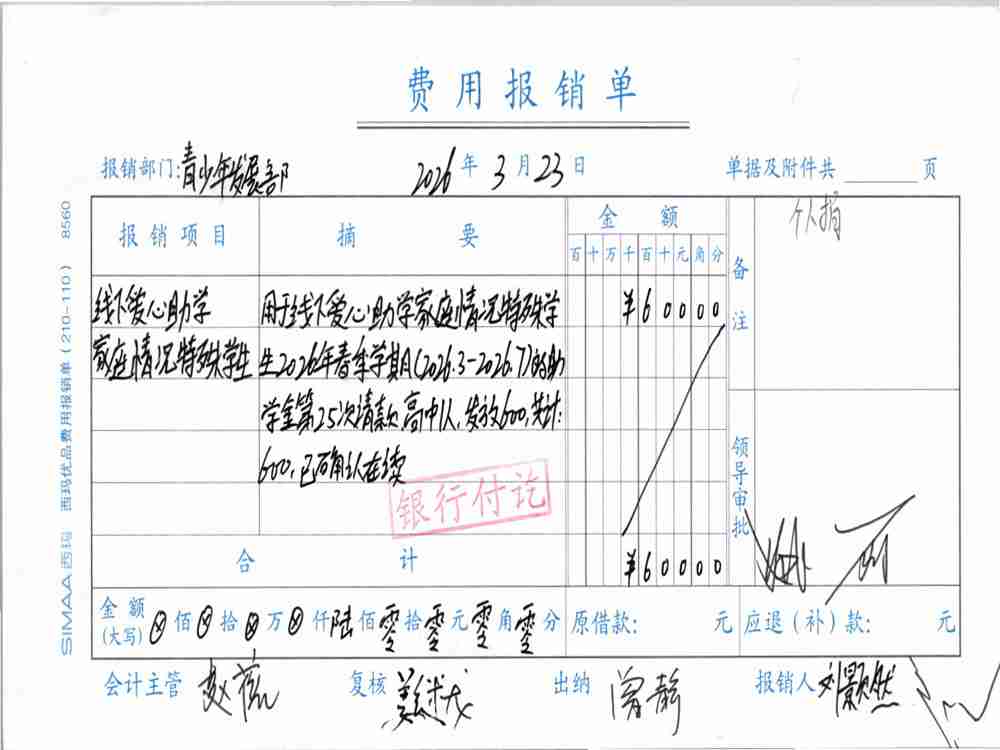 费用报销单
报销部门:青少年发展部 2026年3月23日 单据及附件共 页
报销项目 摘要 金额 备注 个人捐
百十万千百十元角分
线下爱心助学 用于线下爱心助学家庭情况特殊学 ¥60000
家庭情况特殊学生 生2026年春季学期(2026.3-2026.7)的助
学金第25次请款,高中1人,发放600,共计:
600,已确认在续
银行付讫
领导审批
合计 ¥60000
金额(大写) ⊗佰⊗拾⊗万⊗仟陆佰零拾零元零角零分 原借款: 元 应退(补)款: 元
会计主管 复核 出纳 曾静 报销人 刘颢然
SIMAA西玛 西玛优品费用报销单(210-110) 8560